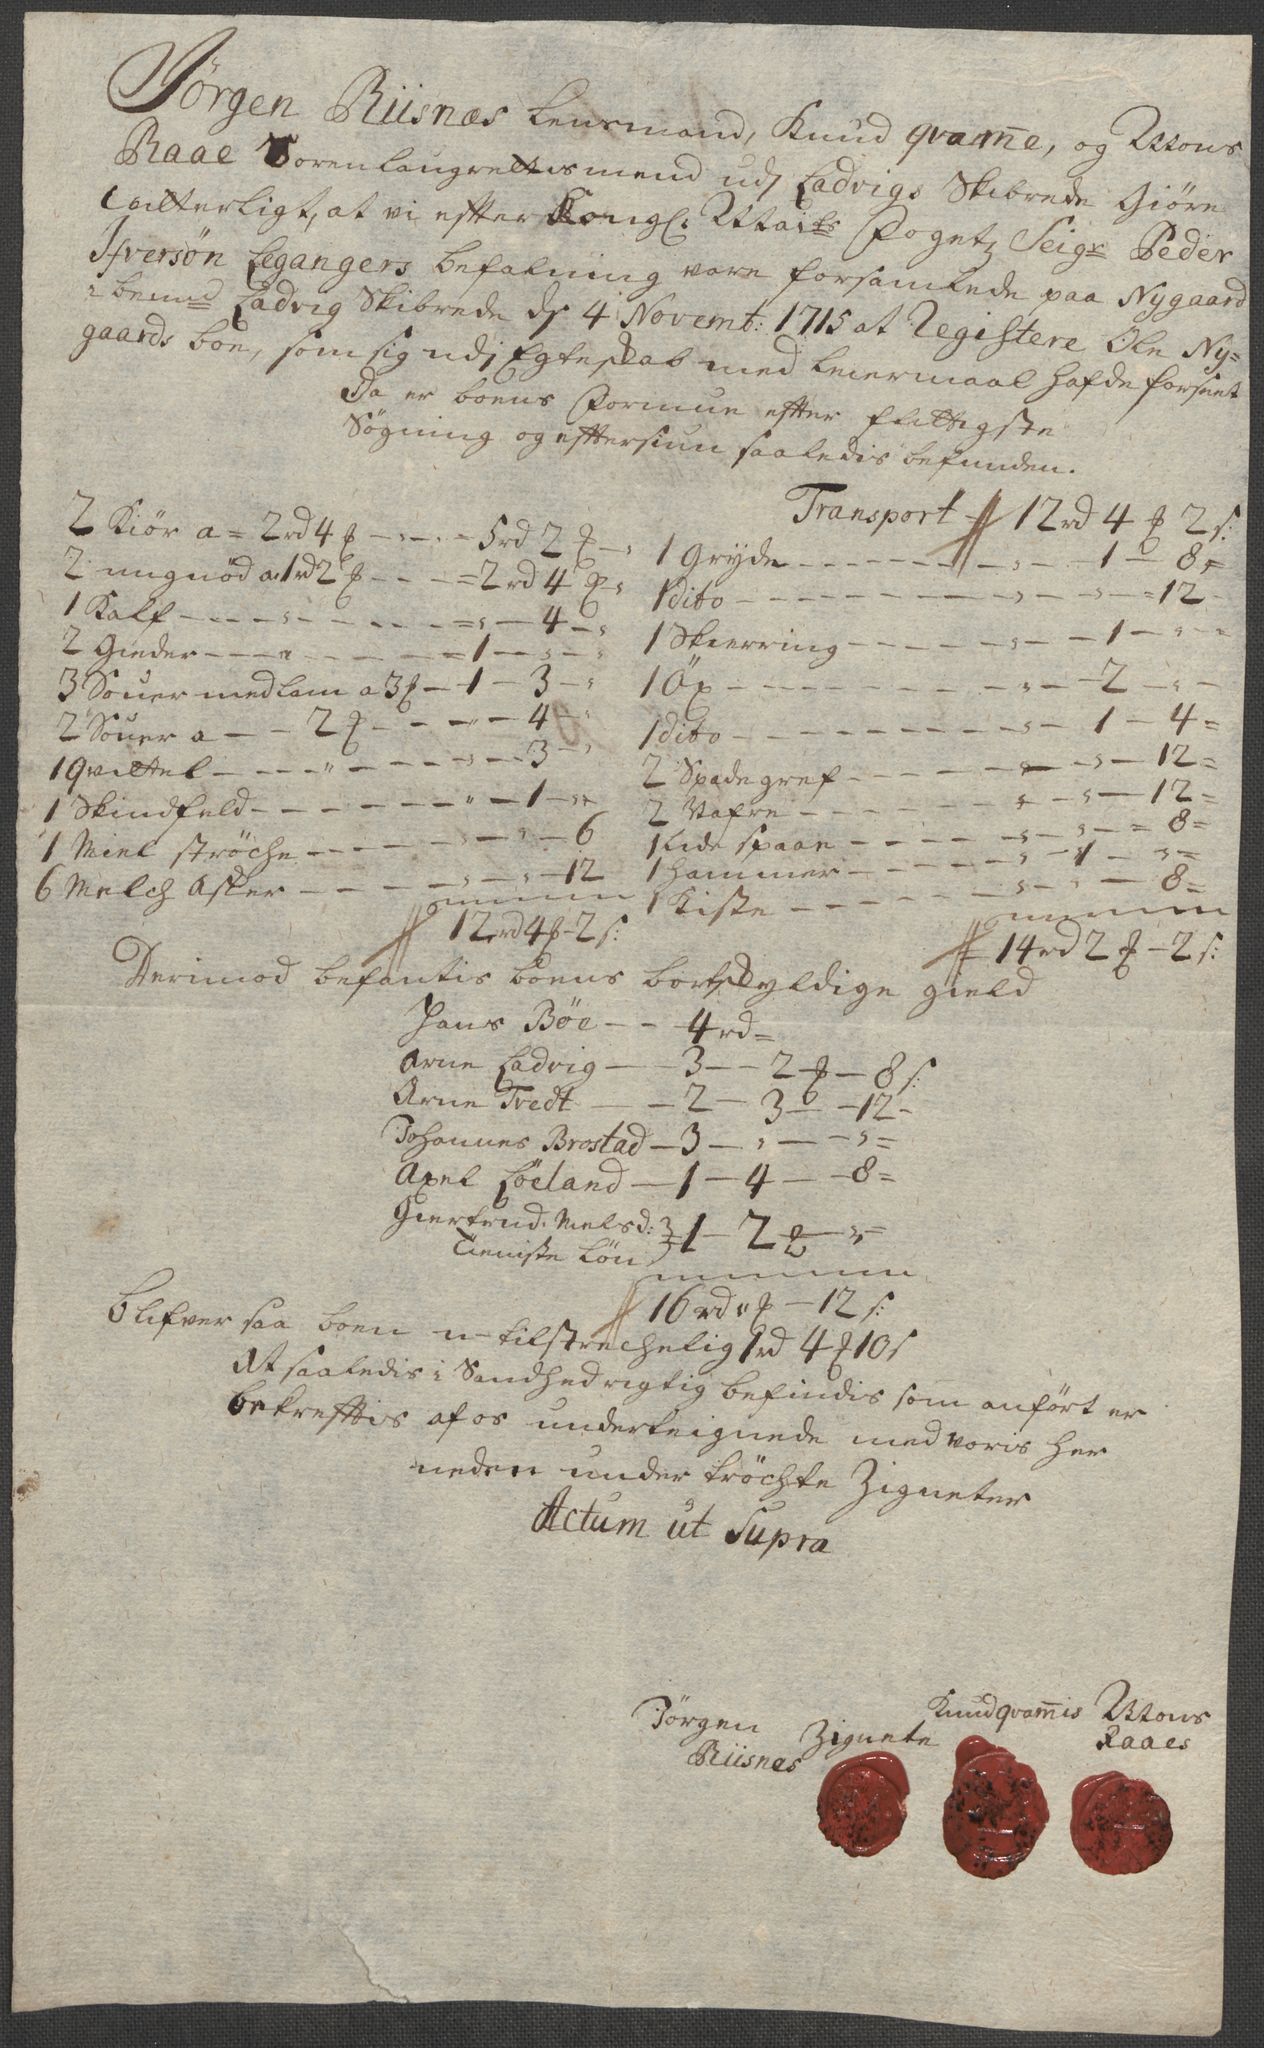 Jörgen Riisnæs Lensmand, Knud qvam̄e, og Mons
Raae Soren laugrettismend udj Ladvigs Skibrede Giöre
vitterligt, at vi effter Kongl: Maits Foget, Seigr Peder
Ifversön Legangers befalning vare forsamlede paa Nygaard
i bemd Ladvig Skibrede dj 4 Novemb: 1715 at Registere Ole Ny=
gaards boe, som sig udj Egteskab med leiermaal hafde forseet
Da er boens Formue effter flittigste
Søgning og eftersiun saaledis befunden.
2 Kiör a = 2rd 4 ₰ - - - 5rd 2 ₰ - "
2 ungnöd a 1rd 2 ₰ - - - = 2rd 4 ₰ "
1 Kalf - - - " - - - - = " - 4 - "
2 Gieder - - - a - - - - = 1 - " - "
3 Souer med lam a 3 ₰ - 1 - 3 - "
2 Souer a - - 2 ₰ - - - " - 4 - "
1 Qvittel - - - " - - - - " - 3 - "
1 Skindfeld - - - - - " - 1 - "
1 Miel ströche - - - - " - " - 6
6 Melch Asker - - - - " - " - 12
12rd 4 ₰ - 2 s:
Transport 12rd 4 ₰ 2 s:
1 Gryde - - - - - - - " - 1 - 8 =
1 dito - - - - - - - - " - " - = 12 -
1 Skierring - - - - - " - 1 - " -
1 Öx - - - - - - - - " - 2 - " -
1 dito - - - - - - - - " - 1 - 4 =
2 Spadegref - - - - - " - " - 12 =
2 Nafre - - - - - - " - " - 12 =
1 Lide spaan - - - - " - " - = 8 =
1 Hammer - - - - - " - 1 - " =
1 Kiste - - - - - - " - " - 8 =
14rd 2 ₰ - 2 s:
Derimod befantis boens bortskyldige gield
Hans Böe - - 4rd =
Arne Ladvig - - 3 - - 2 ₰ - 8 s:
Arne Tvedt - - 2 - 3 - - 12 -
Johannes Brostad - 3 - " - - " =
Axel Löeland - 1 - 4 - - 8 =
Giertrud Melsd:
Tieniste Lön } 1 - 2 ₰ - " =
16rd " ₰ - 12 s:
blifver saa boen u-tilstrechelig 1rd 4 ₰ 10 s
At saaledis i Sandhed rigtig befindis som anfört er
bekrefftis af os underteignede med voris her
neden under tröchte Zigneter
Actum ut Supra
Jörgen
Riisnes
Zignete
Knud qvam̄is
Mons
Raaes